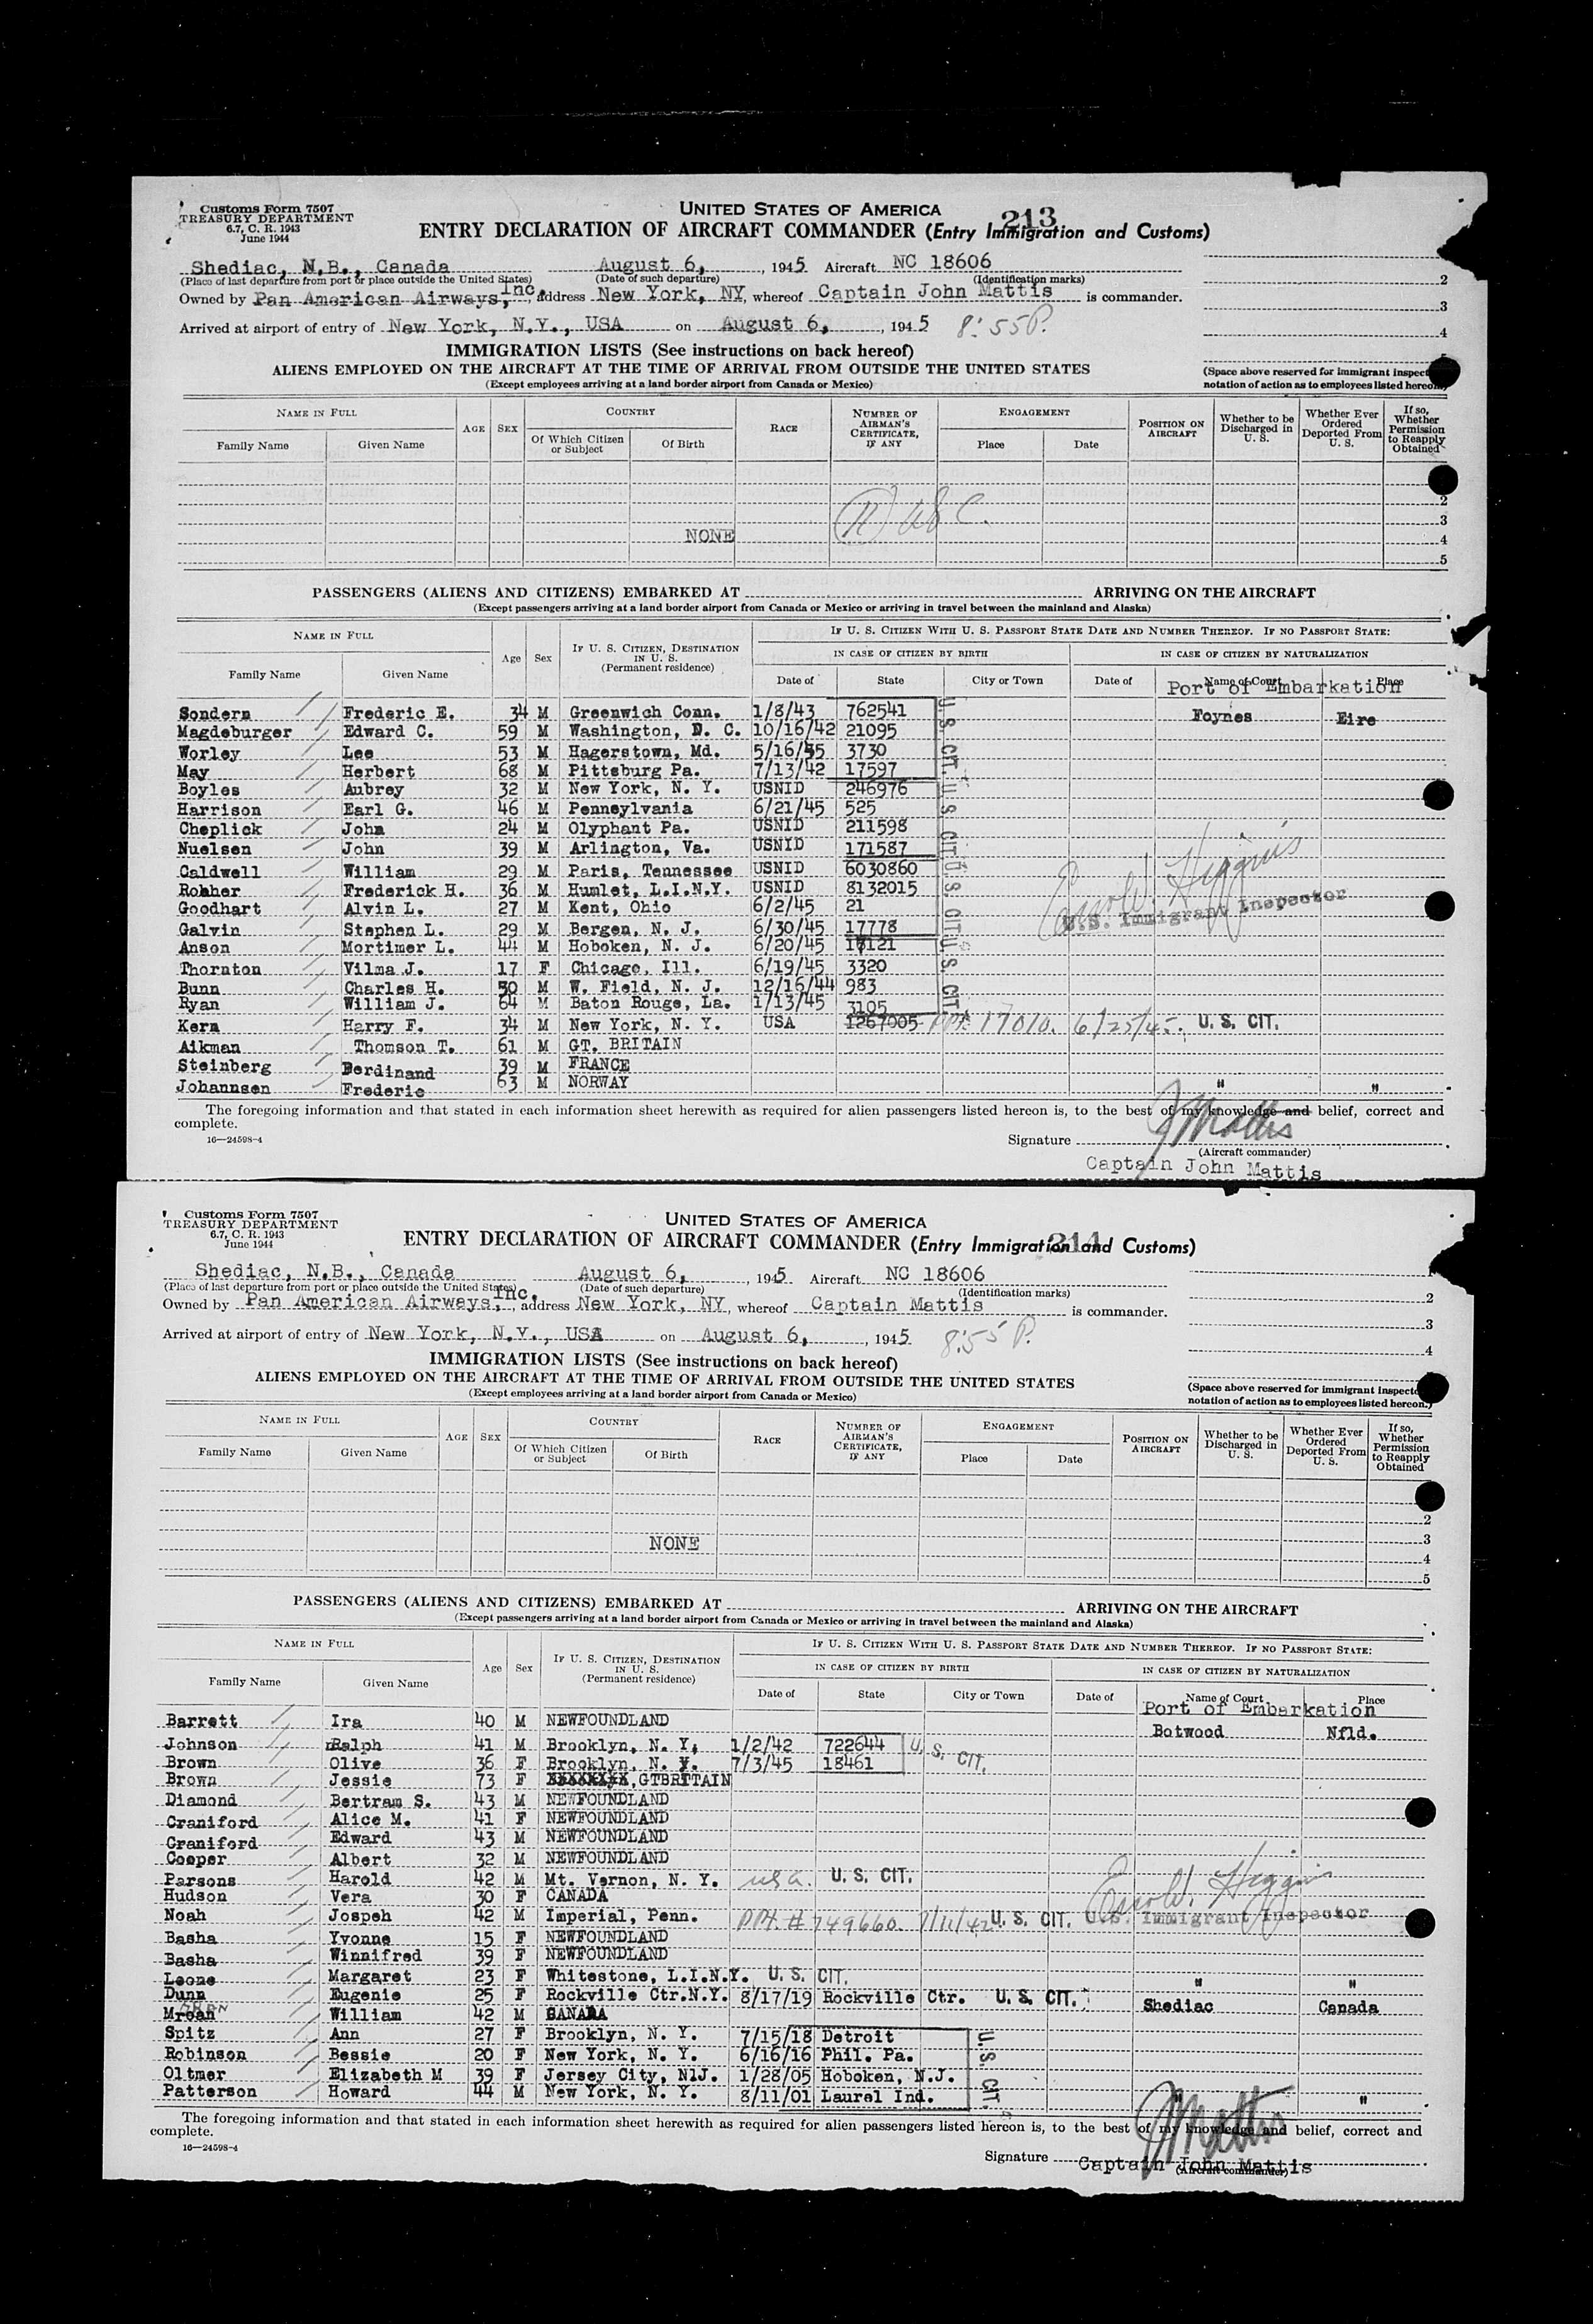 Customs Form 7507
TREASURY DEPARTMENT
6.7, C. R. 1943
June 1944
UNITED STATES OF AMERICA
213
ENTRY DECLARATION OF AIRCRAFT COMMANDER (Entry Immigration and Customs)
Shediac, N.B., Canada August 6, , 1945 Aircraft NC 18606
(Place of last departure from port or place outside the United States) (Date of such departure) (Identification marks)
Owned by Pan American Airways, Inc., address New York, NY, whereof Captain John Mattis is commander.
Arrived at airport of entry of New York, N.Y., USA on August 6, , 1945 8:55P.
2
3
4
IMMIGRATION LISTS (See instructions on back hereof)
ALIENS EMPLOYED ON THE AIRCRAFT AT THE TIME OF ARRIVAL FROM OUTSIDE THE UNITED STATES
(Except employees arriving at a land border airport from Canada or Mexico)
(Space above reserved for immigrant inspect
notation of action as to employees listed hereon.)
NAME IN FULL AGE SEX COUNTRY RACE NUMBER OF AIRMAN'S CERTIFICATE, IF ANY ENGAGEMENT POSITION ON AIRCRAFT Whether to be Discharged in U. S. Whether Ever Ordered Deported From U. S. If so, Whether Permission to Reapply Obtained
Family Name Given Name Of Which Citizen or Subject Of Birth Place Date
2
3
NONE 4
5
PASSENGERS (ALIENS AND CITIZENS) EMBARKED AT ARRIVING ON THE AIRCRAFT
(Except passengers arriving at a land border airport from Canada or Mexico or arriving in travel between the mainland and Alaska)
NAME IN FULL Age Sex IF U. S. CITIZEN, DESTINATION IN U. S. (Permanent residence) IF U. S. CITIZEN WITH U. S. PASSPORT STATE DATE AND NUMBER THEREOF. IF NO PASSPORT STATE:
IN CASE OF CITIZEN BY BIRTH IN CASE OF CITIZEN BY NATURALIZATION
Family Name Given Name Date of State City or Town Date of Name of Court Place
Port of Embarkation
Sondern Frederic E. 34 M Greenwich Conn. 1/8/43 762541 U. S. CIT. Foynes Eire
Magdeburger Edward C. 59 M Washington, D. C. 10/16/42 21095
Worley Lee 53 M Hagerstown, Md. 5/16/45 3730
May Herbert 68 M Pittsburg Pa. 7/13/42 17597
Boyles Aubrey 32 M New York, N. Y. USNID 246976 U. S. CIT.
Harrison Earl G. 46 M Pennsylvania 6/21/45 525
Cheplick John 24 M Olyphant Pa. USNID 211598
Nuelsen John 39 M Arlington, Va. USNID 171587
Caldwell William 29 M Paris, Tennessee USNID 6030860 U. S. CIT.
Rohher Frederick H. 36 M Humlet, L.I.N.Y. USNID 8132015
Goodhart Alvin L. 27 M Kent, Ohio 6/2/45 21
Galvin Stephen L. 29 M Bergen, N. J. 6/30/45 17778
Anson Mortimer L. 44 M Hoboken, N. J. 6/20/45 17121 U. S. CIT.
Thornton Vilma J. 17 F Chicago, Ill. 6/19/45 3320
Bunn Charles H. 50 M W. Field, N. J. 12/16/44 983
Ryan William J. 64 M Baton Rouge, La. 1/13/45 3105
Kern Harry F. 34 M New York, N. Y. USA 1267005 PPt. 17010. 6/25/45. U. S. CIT.
Aikman Thomson T. 61 M GT. BRITAIN
Steinberg Ferdinand 39 M FRANCE
Johannsen Frederic 63 M NORWAY " "
U.S. Immigrant Inspector
The foregoing information and that stated in each information sheet herewith as required for alien passengers listed hereon is, to the best of my knowledge and belief, correct and
complete.
16—24598-4
Signature J Mattis
(Aircraft commander)
Captain John Mattis
Customs Form 7507
TREASURY DEPARTMENT
6.7, C. R. 1943
June 1944
UNITED STATES OF AMERICA
214
ENTRY DECLARATION OF AIRCRAFT COMMANDER (Entry Immigration and Customs)
Shediac, N.B., Canada August 6, , 1945 Aircraft NC 18606
(Place of last departure from port or place outside the United States) (Date of such departure) (Identification marks)
Owned by Pan American Airways, Inc., address New York, NY, whereof Captain Mattis is commander.
Arrived at airport of entry of New York, N.Y., USA on August 6, , 1945 8:55 P.
2
3
4
IMMIGRATION LISTS (See instructions on back hereof)
ALIENS EMPLOYED ON THE AIRCRAFT AT THE TIME OF ARRIVAL FROM OUTSIDE THE UNITED STATES
(Except employees arriving at a land border airport from Canada or Mexico)
(Space above reserved for immigrant inspecto
notation of action as to employees listed hereon.)
NAME IN FULL AGE SEX COUNTRY RACE NUMBER OF AIRMAN'S CERTIFICATE, IF ANY ENGAGEMENT POSITION ON AIRCRAFT Whether to be Discharged in U. S. Whether Ever Ordered Deported From U. S. If so, Whether Permission to Reapply Obtained
Family Name Given Name Of Which Citizen or Subject Of Birth Place Date
2
NONE 3
4
5
PASSENGERS (ALIENS AND CITIZENS) EMBARKED AT ARRIVING ON THE AIRCRAFT
(Except passengers arriving at a land border airport from Canada or Mexico or arriving in travel between the mainland and Alaska)
NAME IN FULL Age Sex IF U. S. CITIZEN, DESTINATION IN U. S. (Permanent residence) IF U. S. CITIZEN WITH U. S. PASSPORT STATE DATE AND NUMBER THEREOF. IF NO PASSPORT STATE:
IN CASE OF CITIZEN BY BIRTH IN CASE OF CITIZEN BY NATURALIZATION
Family Name Given Name Date of State City or Town Date of Name of Court Place
Port of Embarkation
Barrett Ira 40 M NEWFOUNDLAND Botwood Nfld.
Johnson Ralph 41 M Brooklyn, N. Y. 1/2/42 722644 U. S. CIT.
Brown Olive 36 F Brooklyn, N. Y. 7/3/45 18461
Brown Jessie 73 F XXXXXXXX,GTBRITAIN
Diamond Bertram S. 43 M NEWFOUNDLAND
Craniford Alice M. 41 F NEWFOUNDLAND
Craniford Edward 43 M NEWFOUNDLAND
Cooper Albert 32 M NEWFOUNDLAND
Parsons Harold 42 M Mt. Vernon, N. Y. usa. U. S. CIT.
Hudson Vera 30 F CANADA
Noah Jospeh 42 M Imperial, Penn. PPt. # 749660. 7/11/42 U. S. CIT. U.S. Immigrant Inspector
Basha Yvonne 15 F NEWFOUNDLAND
Basha Winnifred 39 F NEWFOUNDLAND
Leone Margaret 23 F Whitestone, L.I.N.Y. U. S. CIT. " "
Dunn Eugenie 25 F Rockville Ctr.N.Y. 8/17/19 Rockville Ctr. U. S. CIT. Shediac Canada
Mroan William 42 M CANADA
Spitz Ann 27 F Brooklyn, N. Y. 7/15/18 Detroit U. S. CIT.
Robinson Bessie 20 F New York, N. Y. 6/16/16 Phil. Pa.
Oltmer Elizabeth M 39 F Jersey City, NlJ. 1/28/05 Hoboken, N.J.
Patterson Howard 44 M New York, N. Y. 8/11/01 Laurel Ind. " "
The foregoing information and that stated in each information sheet herewith as required for alien passengers listed hereon is, to the best of my knowledge and belief, correct and
complete.
16—24598-4
Signature J Mattis
Captain John Mattis
(Aircraft commander)